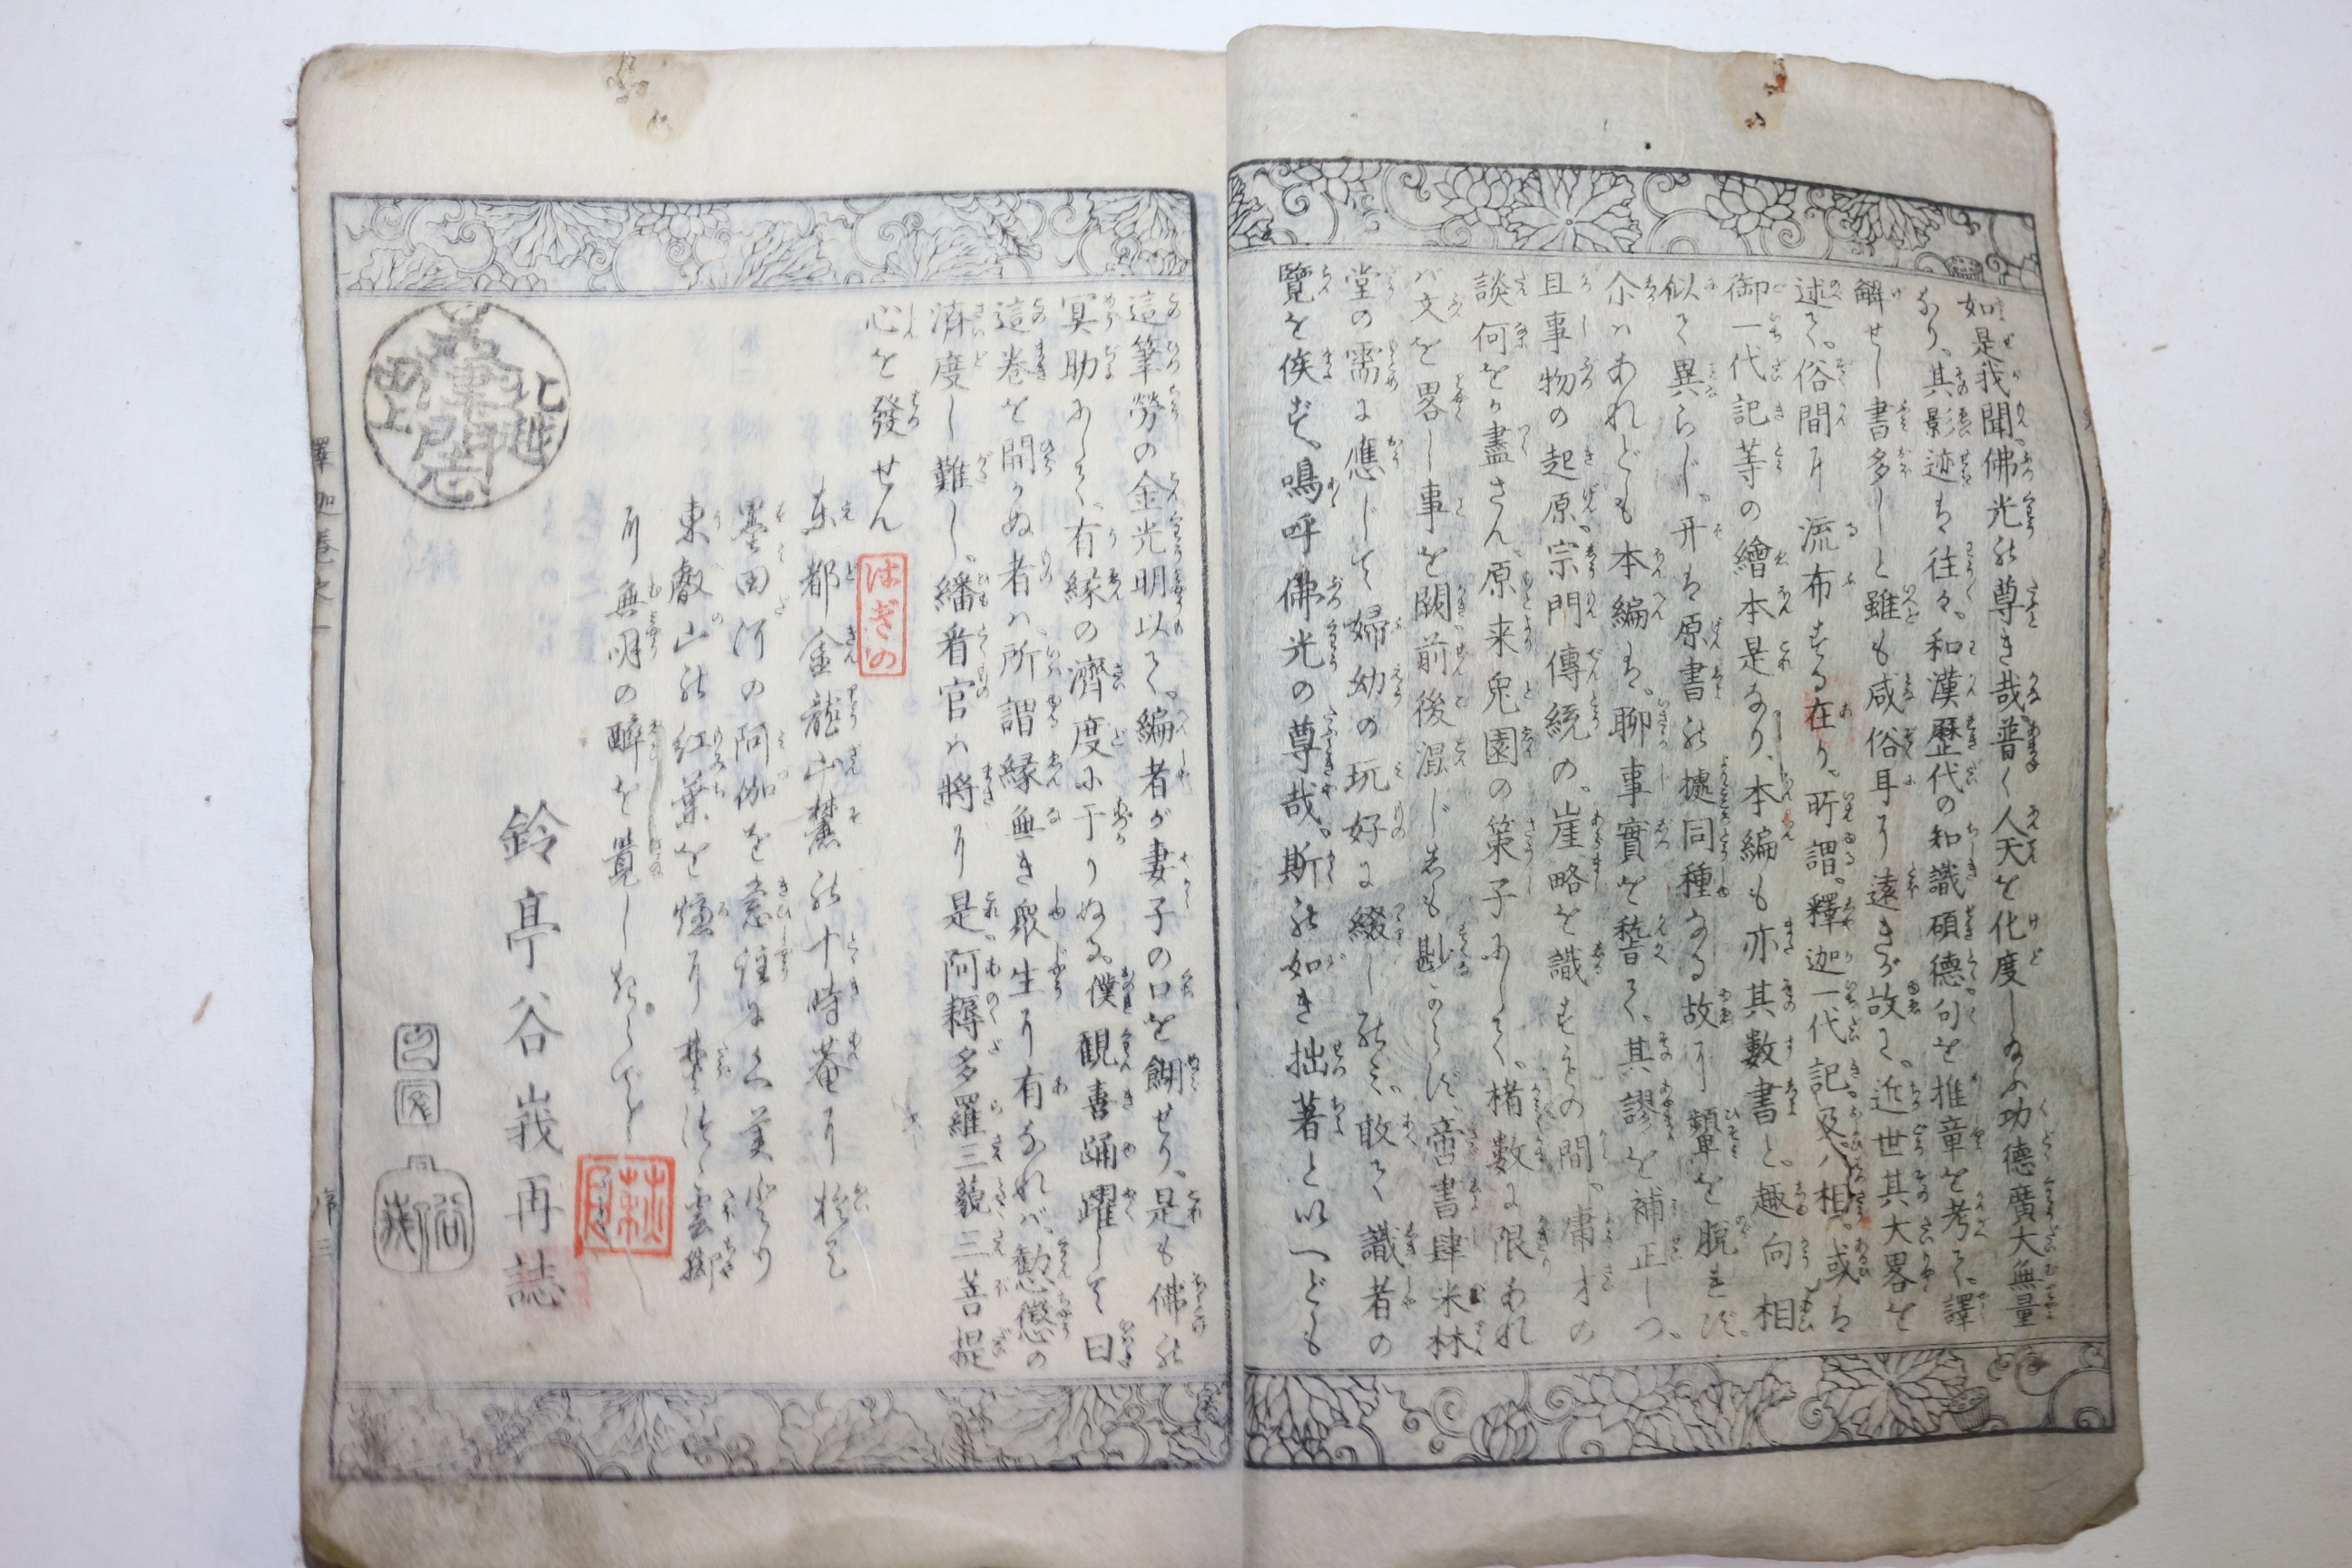 如是我聞佛光の尊き哉普く人天を化度し給ふ功德廣大無量
なり、其影迹は往々、和漢歴代の知識碩德句を推章を考て、譯
解せし書多しと雖も咸俗耳に遠きが故に、近世其大畧を
述て。俗間に流布する在り。所謂釋迦一代記及八相。或は
御一代記等の繪本是なり、本編も亦其數書と、趣向相
似て異らじ。开は原書の據同種なる故に顰を脱れず。
尒はあれども本編は、聊事實を稽て、其謬を補正しつ、
且事物の起原、宗門傳統の、崖略を識すものの間、庸才の
談何をか盡さん、原来兔園の策子にして、楮數に限あれ
ば文を畧し事を闕前後混じしも尠からず、啻書肆米林
堂の需に應じて婦幼の玩好に綴し耳、敢て識者の
覽を俟ず、鳴呼佛光の尊哉。斯の如き拙著と以へども
這筆勞の金光明以て、編者が妻子の口を餬せり、是も佛の
冥助にして、有縁の濟度に干りぬる、僕觀喜踊躍して曰
這卷を開かぬ者は所謂縁無き衆生に有なれバ、勸懲の
濟度し難し、繙看官は將に是、阿耨多羅三藐三菩提
心を發せん
東都金龍山麓の十時菴に於て
墨田河の阿伽を
東叡山の紅葉を
に無明の醉を覺し
鈴亭谷峩再誌
はぎの
北越
田上
俗峩
釋迦卷之一
序三